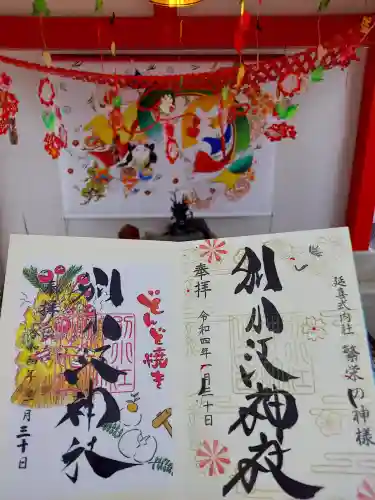 延喜式内社 繁栄の神様
別小江神社
奉拝
令和四年一月三十日
どんど焼き
別小江神社
奉拝
一月三十日